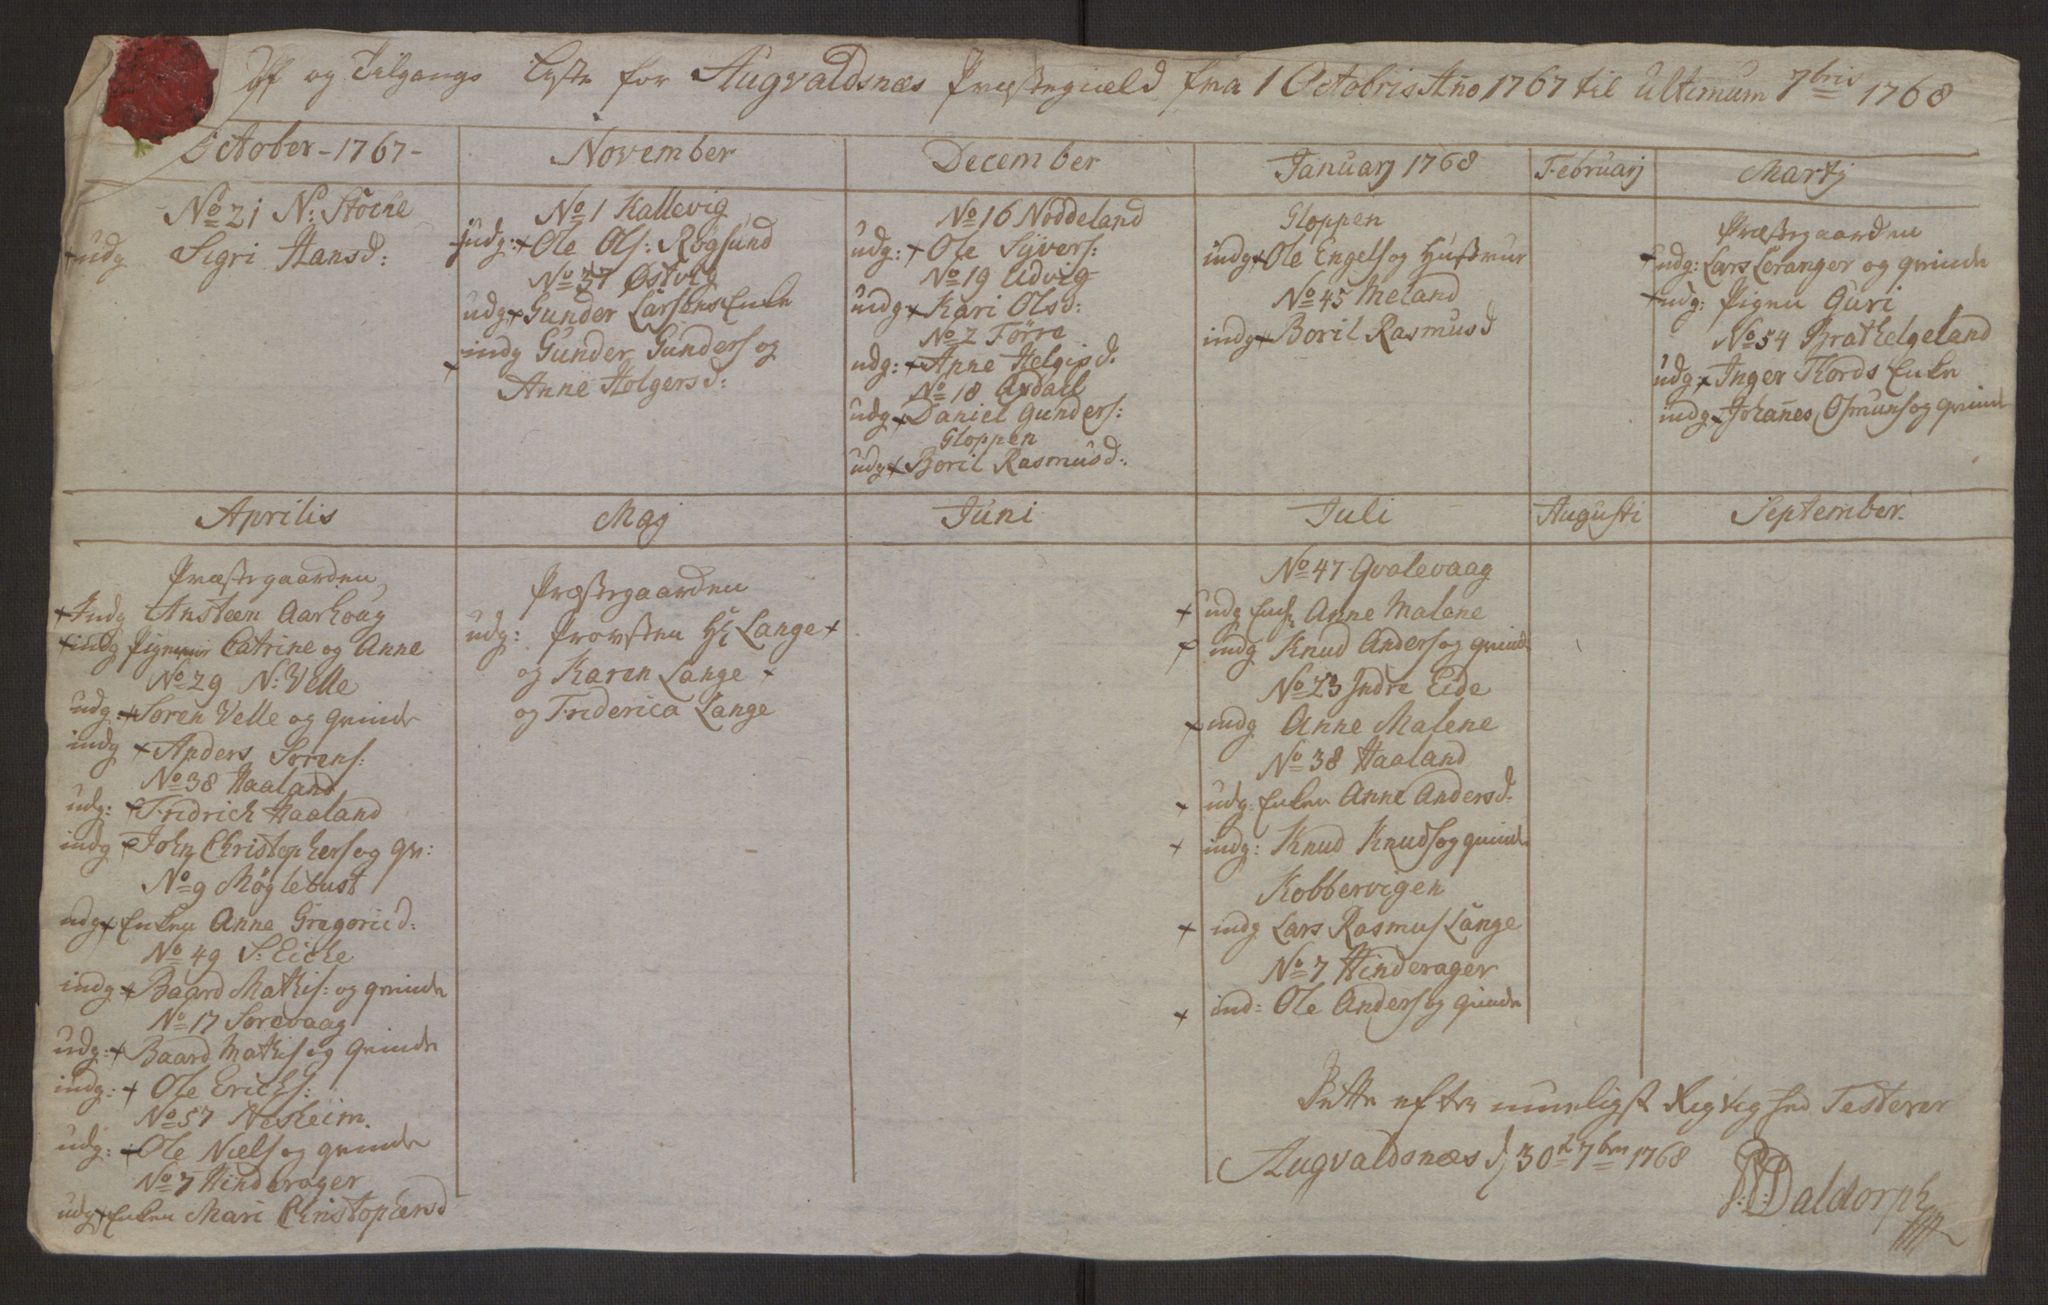 Af og Tilgangs Lyste for Augvaldsnæs Præstegield fra 1 Octobris Año 1767 til Ultimum 7bris 1768
October-1767-
No 21 N: Stöcke
+ udg Sigri Hansd:
November
No 1 Kallevig
udg: + Ole Ols: Røgsund
No 37 Østvig
udg + Gunder Larsens Enke
indg Gunder Gunders og
+ Anne Holgersd:
December
No 16 Nöddeland
udg: + Ole Syvers:
No 19 Udvig
udg + Kari Olsd:
No 2 Förre
udg: + Anne Helgesd:
No 18 Axdall
udg + Daniel Gunders:
Gloppen
udg + Boril Rasmusd:
Januarj 1768
Gloppen
indg + Ole Engels og Hustrur
No 45 Meland
indg + Boril Rasmusd
Februarj
Martj
Præstegaarden
+ udg: Lars Leranger og qvinde
+ udg: Pigen Guri
No 54 Brathelgeland
udg + Inger Thords Enke
indg + Johañes Osmuns og qvinde
Aprilis
Præstegaarden
+ Indg Ansteen Aarhoug
+ indg Pigerne Catrine og Anne
No 29 N: Velle
udg: + Soren Velle og qvinde
indg + Anders Sorens:
No 38 Haaland
udg: + Fridrich Haaland
indg + John Christophers og qv:
No 9 Møglebust
udg + Enken Anne Gregorisd:
No 49 S: Eicke
indg + Baard Mathis: og qvinde
No 17 Sorevaag
udg: + Baard Mathis og Qvinde
indg: + Ole Erichs:
No 57 Heskeim
udg: + Ole Niels og qvinde
No 7 Hinderager
udg + Enken Mari Christophersd
Maj
Præstegaarden
udg: Provsten Hr Lange +
og Karen Lange +
og Friderica Lange
Juni
Juli
No 47 Qvalevaag
+ udg Enke Anne Malene
+ indg Knud Anders og qvinde
No 23 Indre Eide
+ indg Anne Malene
No 38 Haaland
+ udg: Enken Anne Andersd:
+ indg: Knud Knuds og qvinde
Kobbervigen
+ indg Lars Rasmus Lange
No 7 Hinderager
+ ind: Ole Anders og qvinde
Augusti
September.
Dette efter mueligst Rigtighed Testerer
Augvaldsnæs d, 30te 7bris 1768
Daldorph